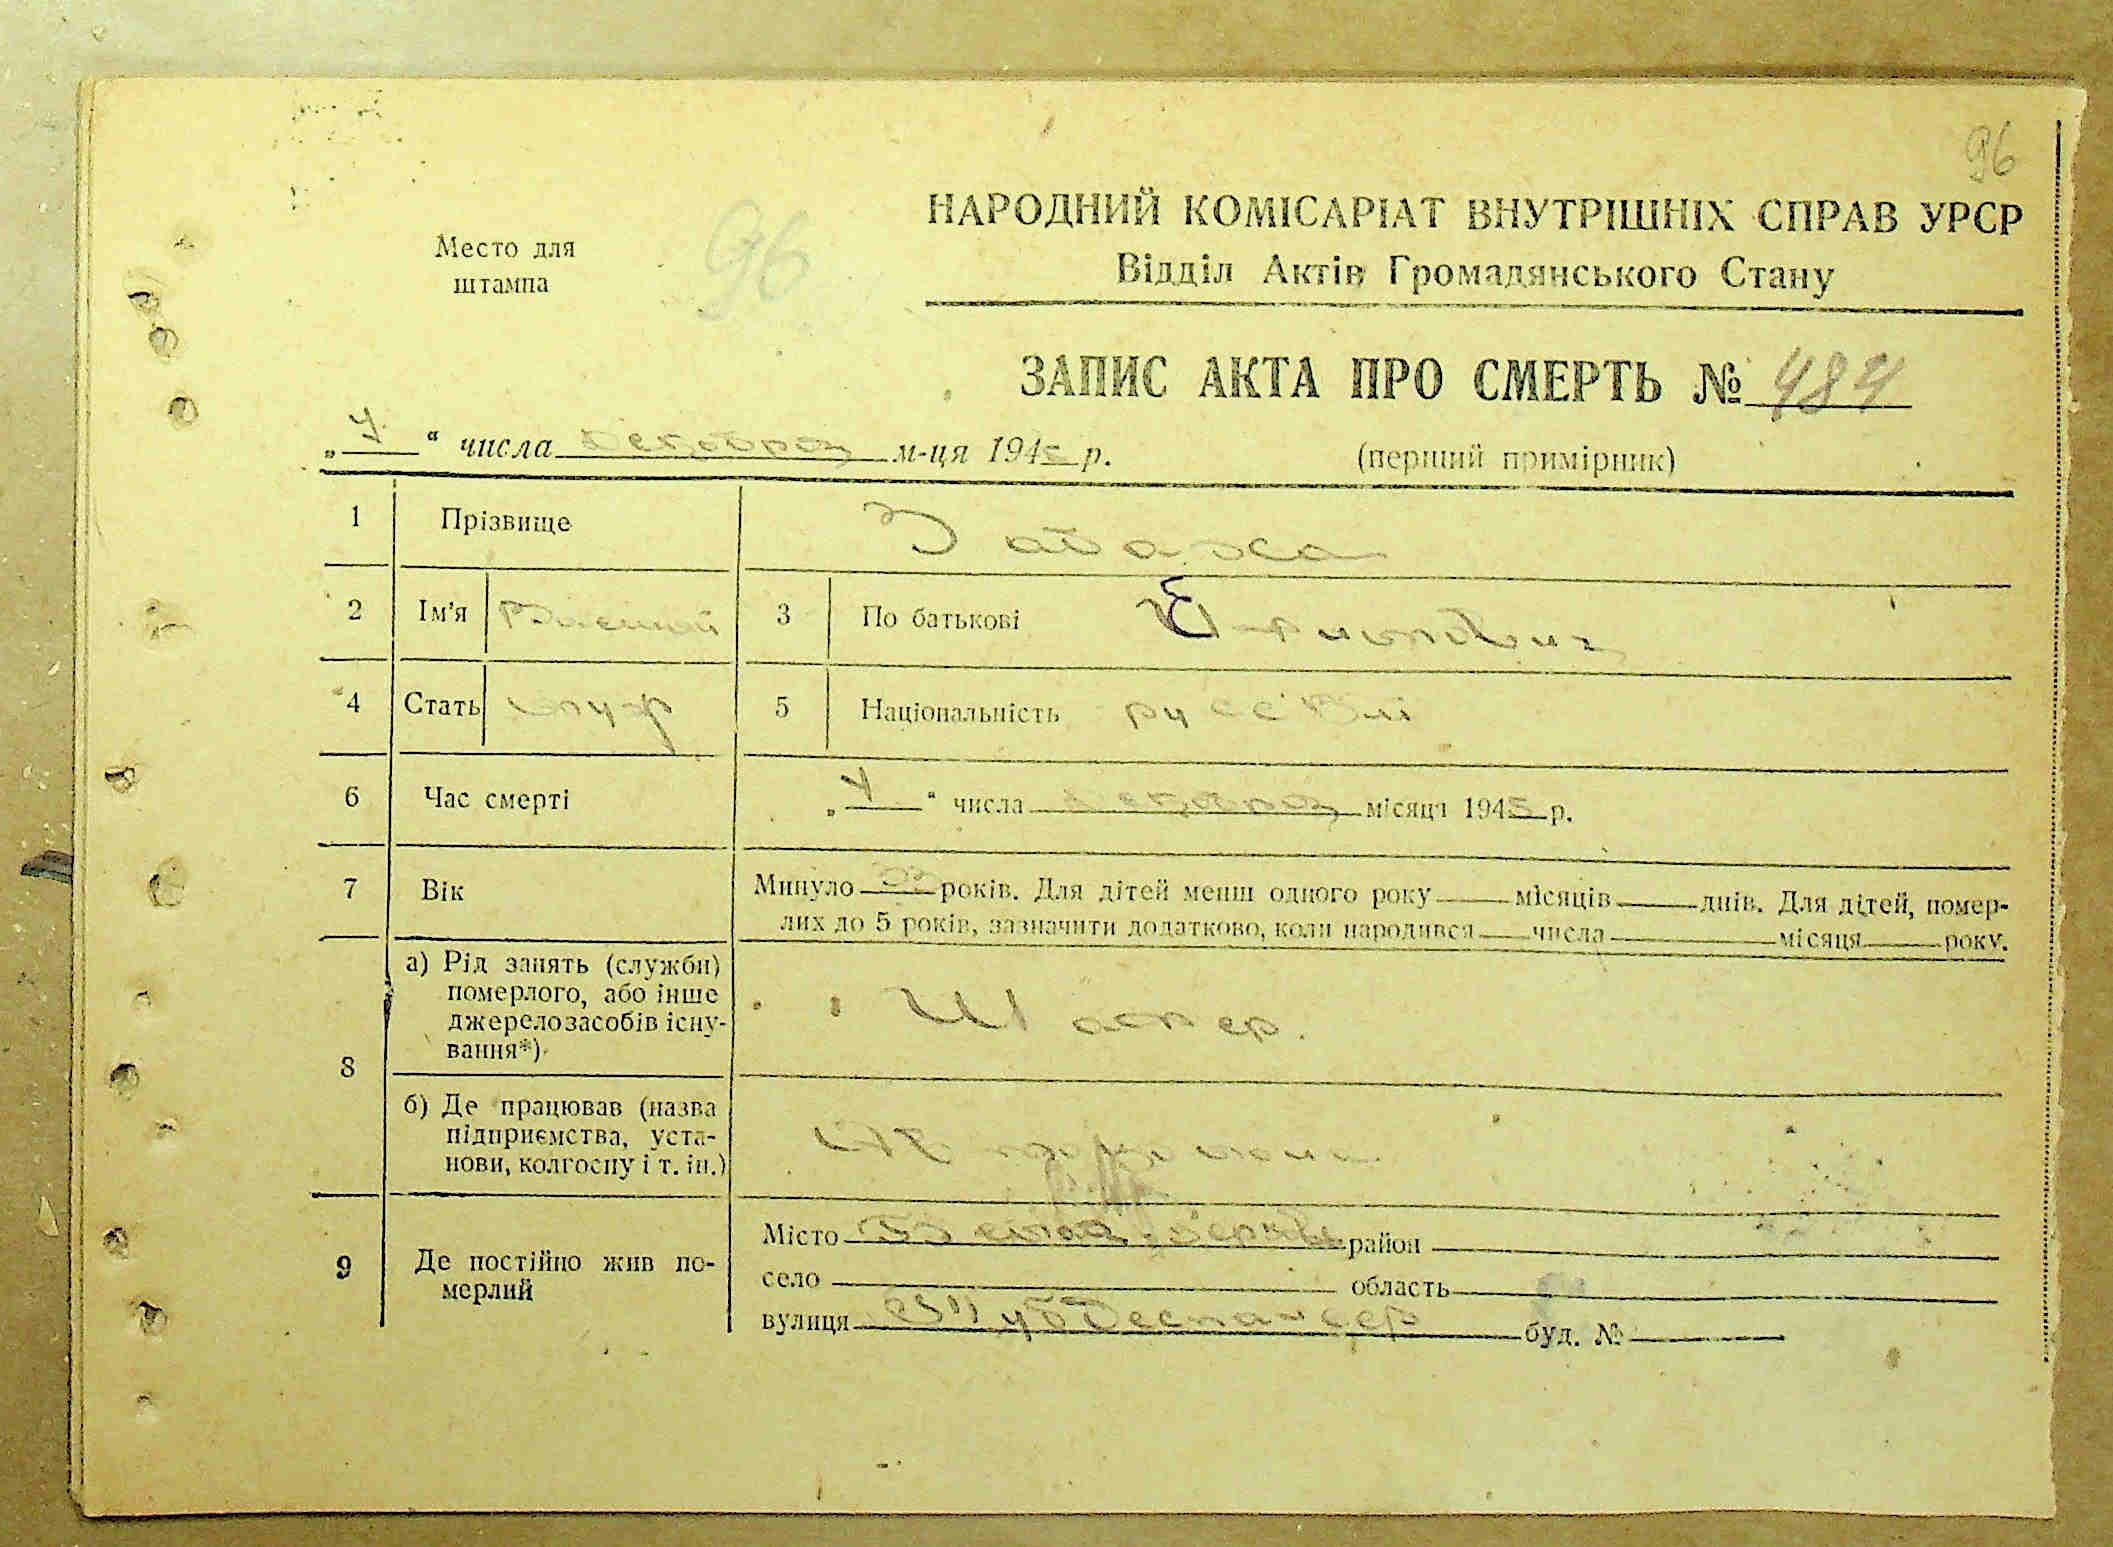 96
НАРОДНИЙ КОМІСАРІАТ ВНУТРІШНІХ СПРАВ УРСР
Место для
штампа
96
Відділ Актів Громадянського Стану
ЗАПИС АКТА ПРО СМЕРТЬ № 484
„ “ числа декабря м-ця 1945 р.
(перший примірник)
1 Прізвище Забажа
2 Ім'я 3 По батькові
4 Стать муж 5 Національність русский
6 Час смерті „ “ числа декабря місяця 1945 р.
7 Вік Минуло років. Для дітей менш одного року місяців днів. Для дітей, помер-
лих до 5 років, зазначити додатково, коли народився числа місяця року.
8 а) Рід занять (служби)
померлого, або інше
джерело засобів існу-
вання*)
Шахтер.
б) Де працював (назва
підприємства, уста-
нови, колгоспу і т. ін.)
9 Де постійно жив по-
мерлий
Місто Белая-Церковь район
село область
вулиця буд. №